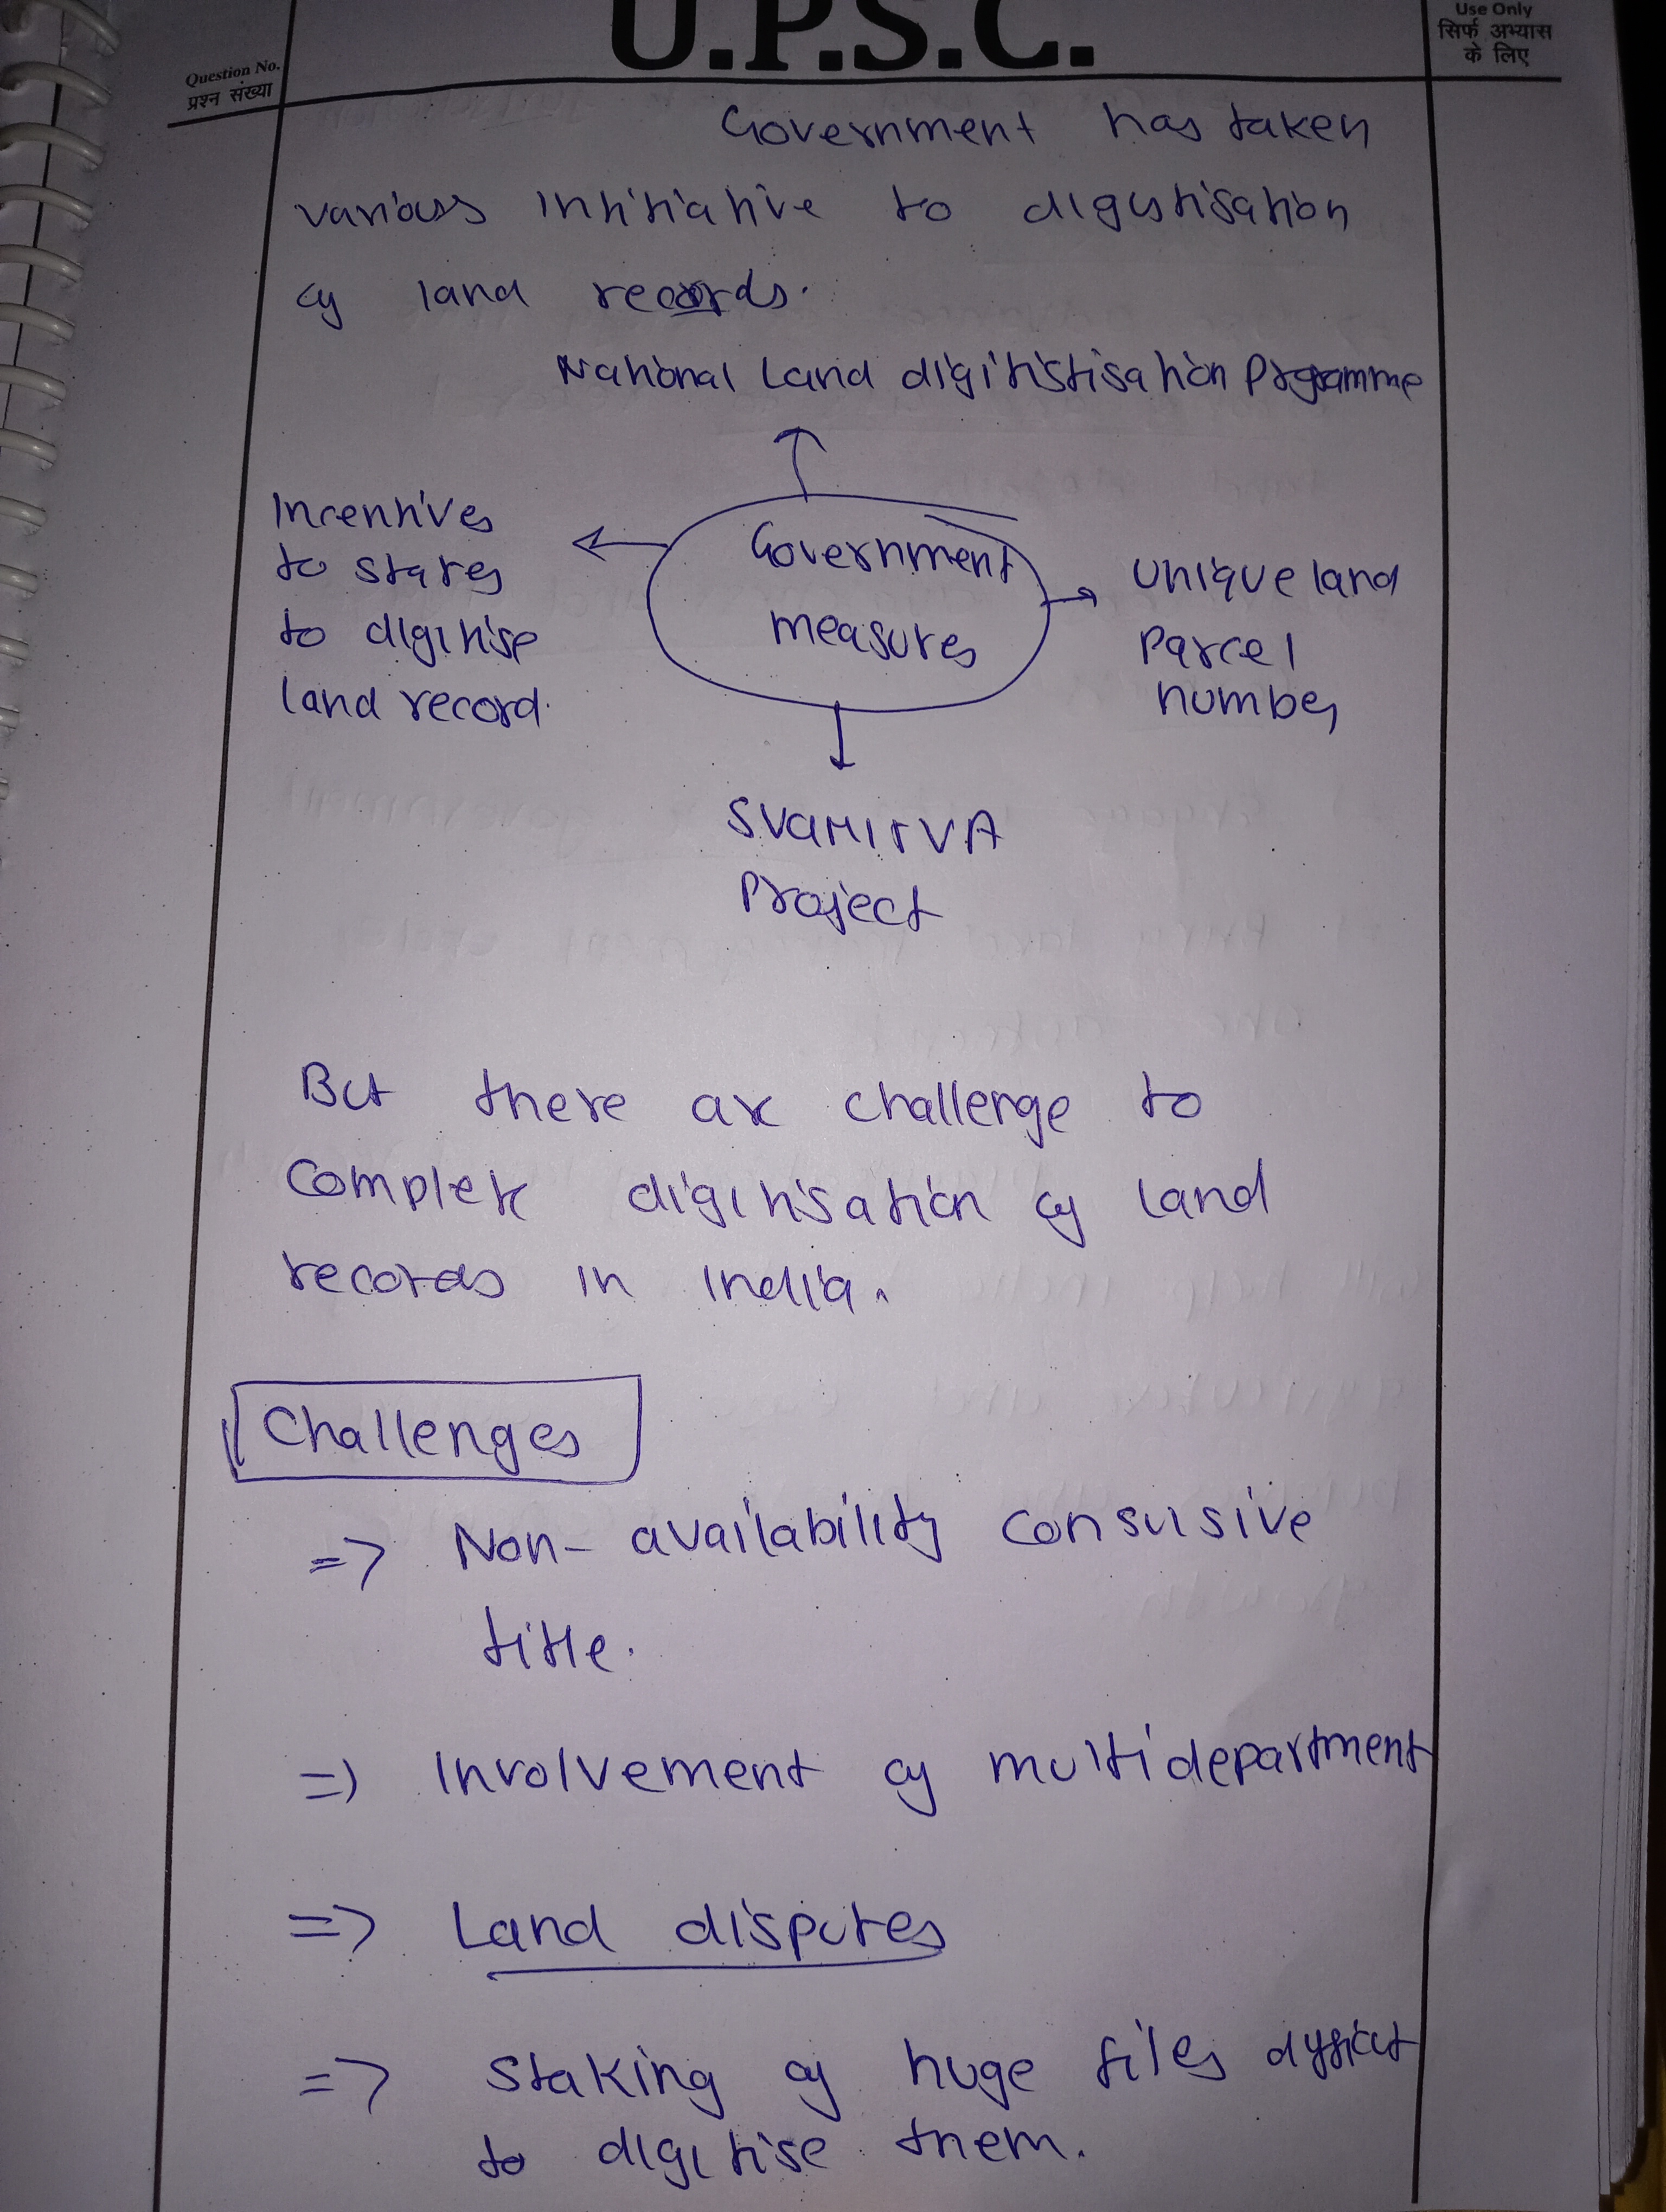 U.P.S.C.
Use Only
सिर्फ अभ्यास
के लिए
Question No.
प्रश्न संख्या
Government has taken
various initiative to digitisation
of land records.
National Land digitistisation Programme
Incentives
to states
to digitise
land record.
Government
measures
Unique land
Parcel
number
SVAMITVA
Project
But there are challenge to
complete digitisation of land
records in India.
Challenges
=> Non-availability consulsive
title.
=> Involvement of multidepartment
=> Land disputes
=> staking of huge files difficult
to digitise them.